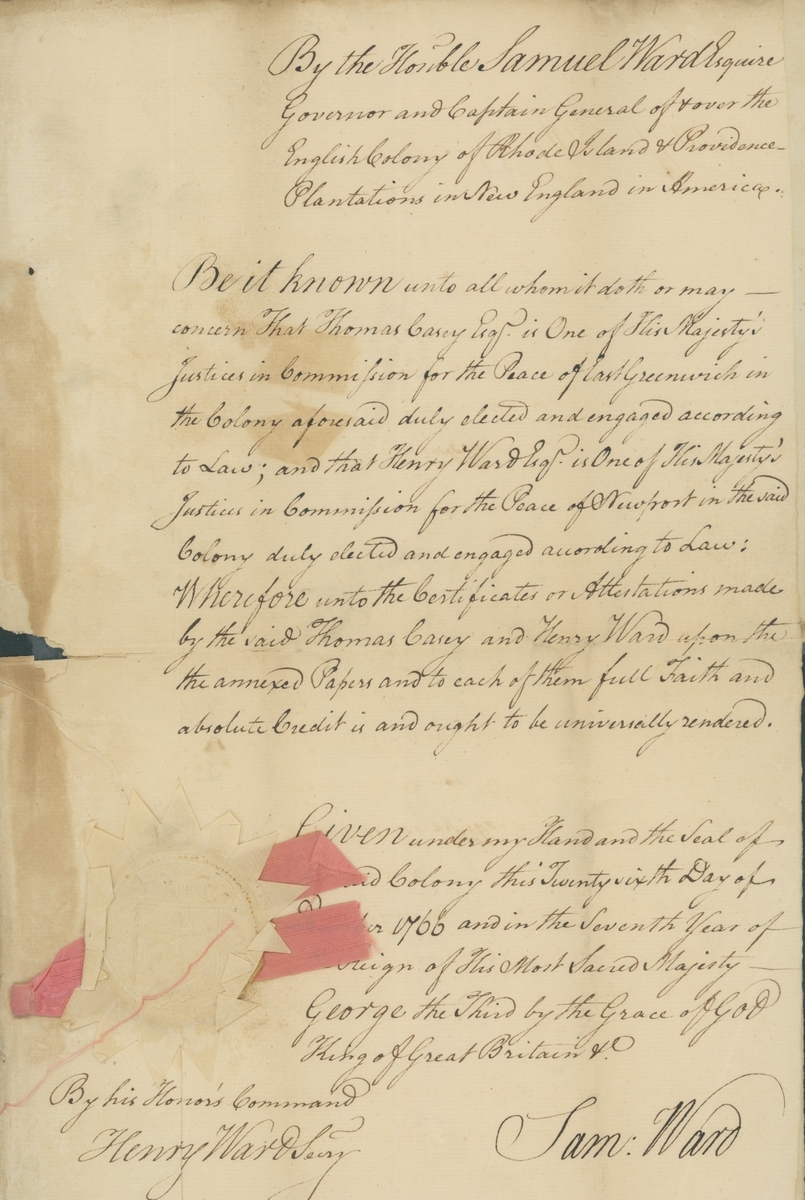 By the Honble Samuel Ward Esquire
Governor and Captain General of & over the
English Colony of Rhode Island & Providence
Plantations in New England in America.
Be it known unto all whom it doth or may
concern That Thomas Casey Esqr. is One of His Majesty's
Justices in Commission for the Peace of East Greenwich in
the Colony aforesaid duly elected and engaged according
to Law; and that Henry Ward Esqr. is One of His Majesty's
Justices in Commission for the Peace of Newport in the said
Colony duly elected and engaged according to Law:
Wherefore unto the Certificates or Attestations made
by the said Thomas Casey and Henry Ward upon the
the annexed Papers and to each of them full Faith and
absolute Credit is and ought to be universally rendered.
Given under my Hand and the Seal of
Colony this Twenty sixth Day of
1766 and in the Seventh Year of
of His Most Sacred Majesty
George the Third by the Grace of God
King of Great Britain &c
By his Honor's Command
Henry Ward Secry
Sam: Ward